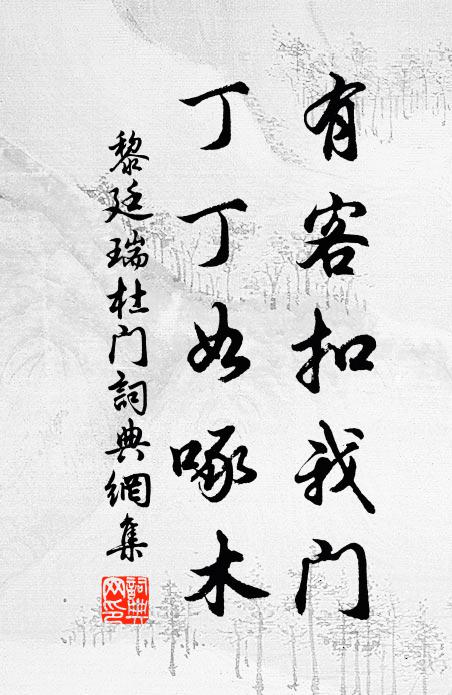 有客扣我门
丁丁如啄木
黎廷瑞杜门詞典網集
詞典网印